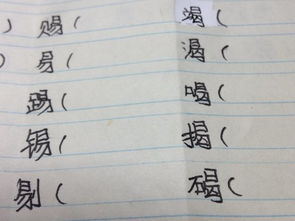 ) 赐( 竭(
) 易( 渴(
踢( 喝(
锡( 揭(
剔( 碣(